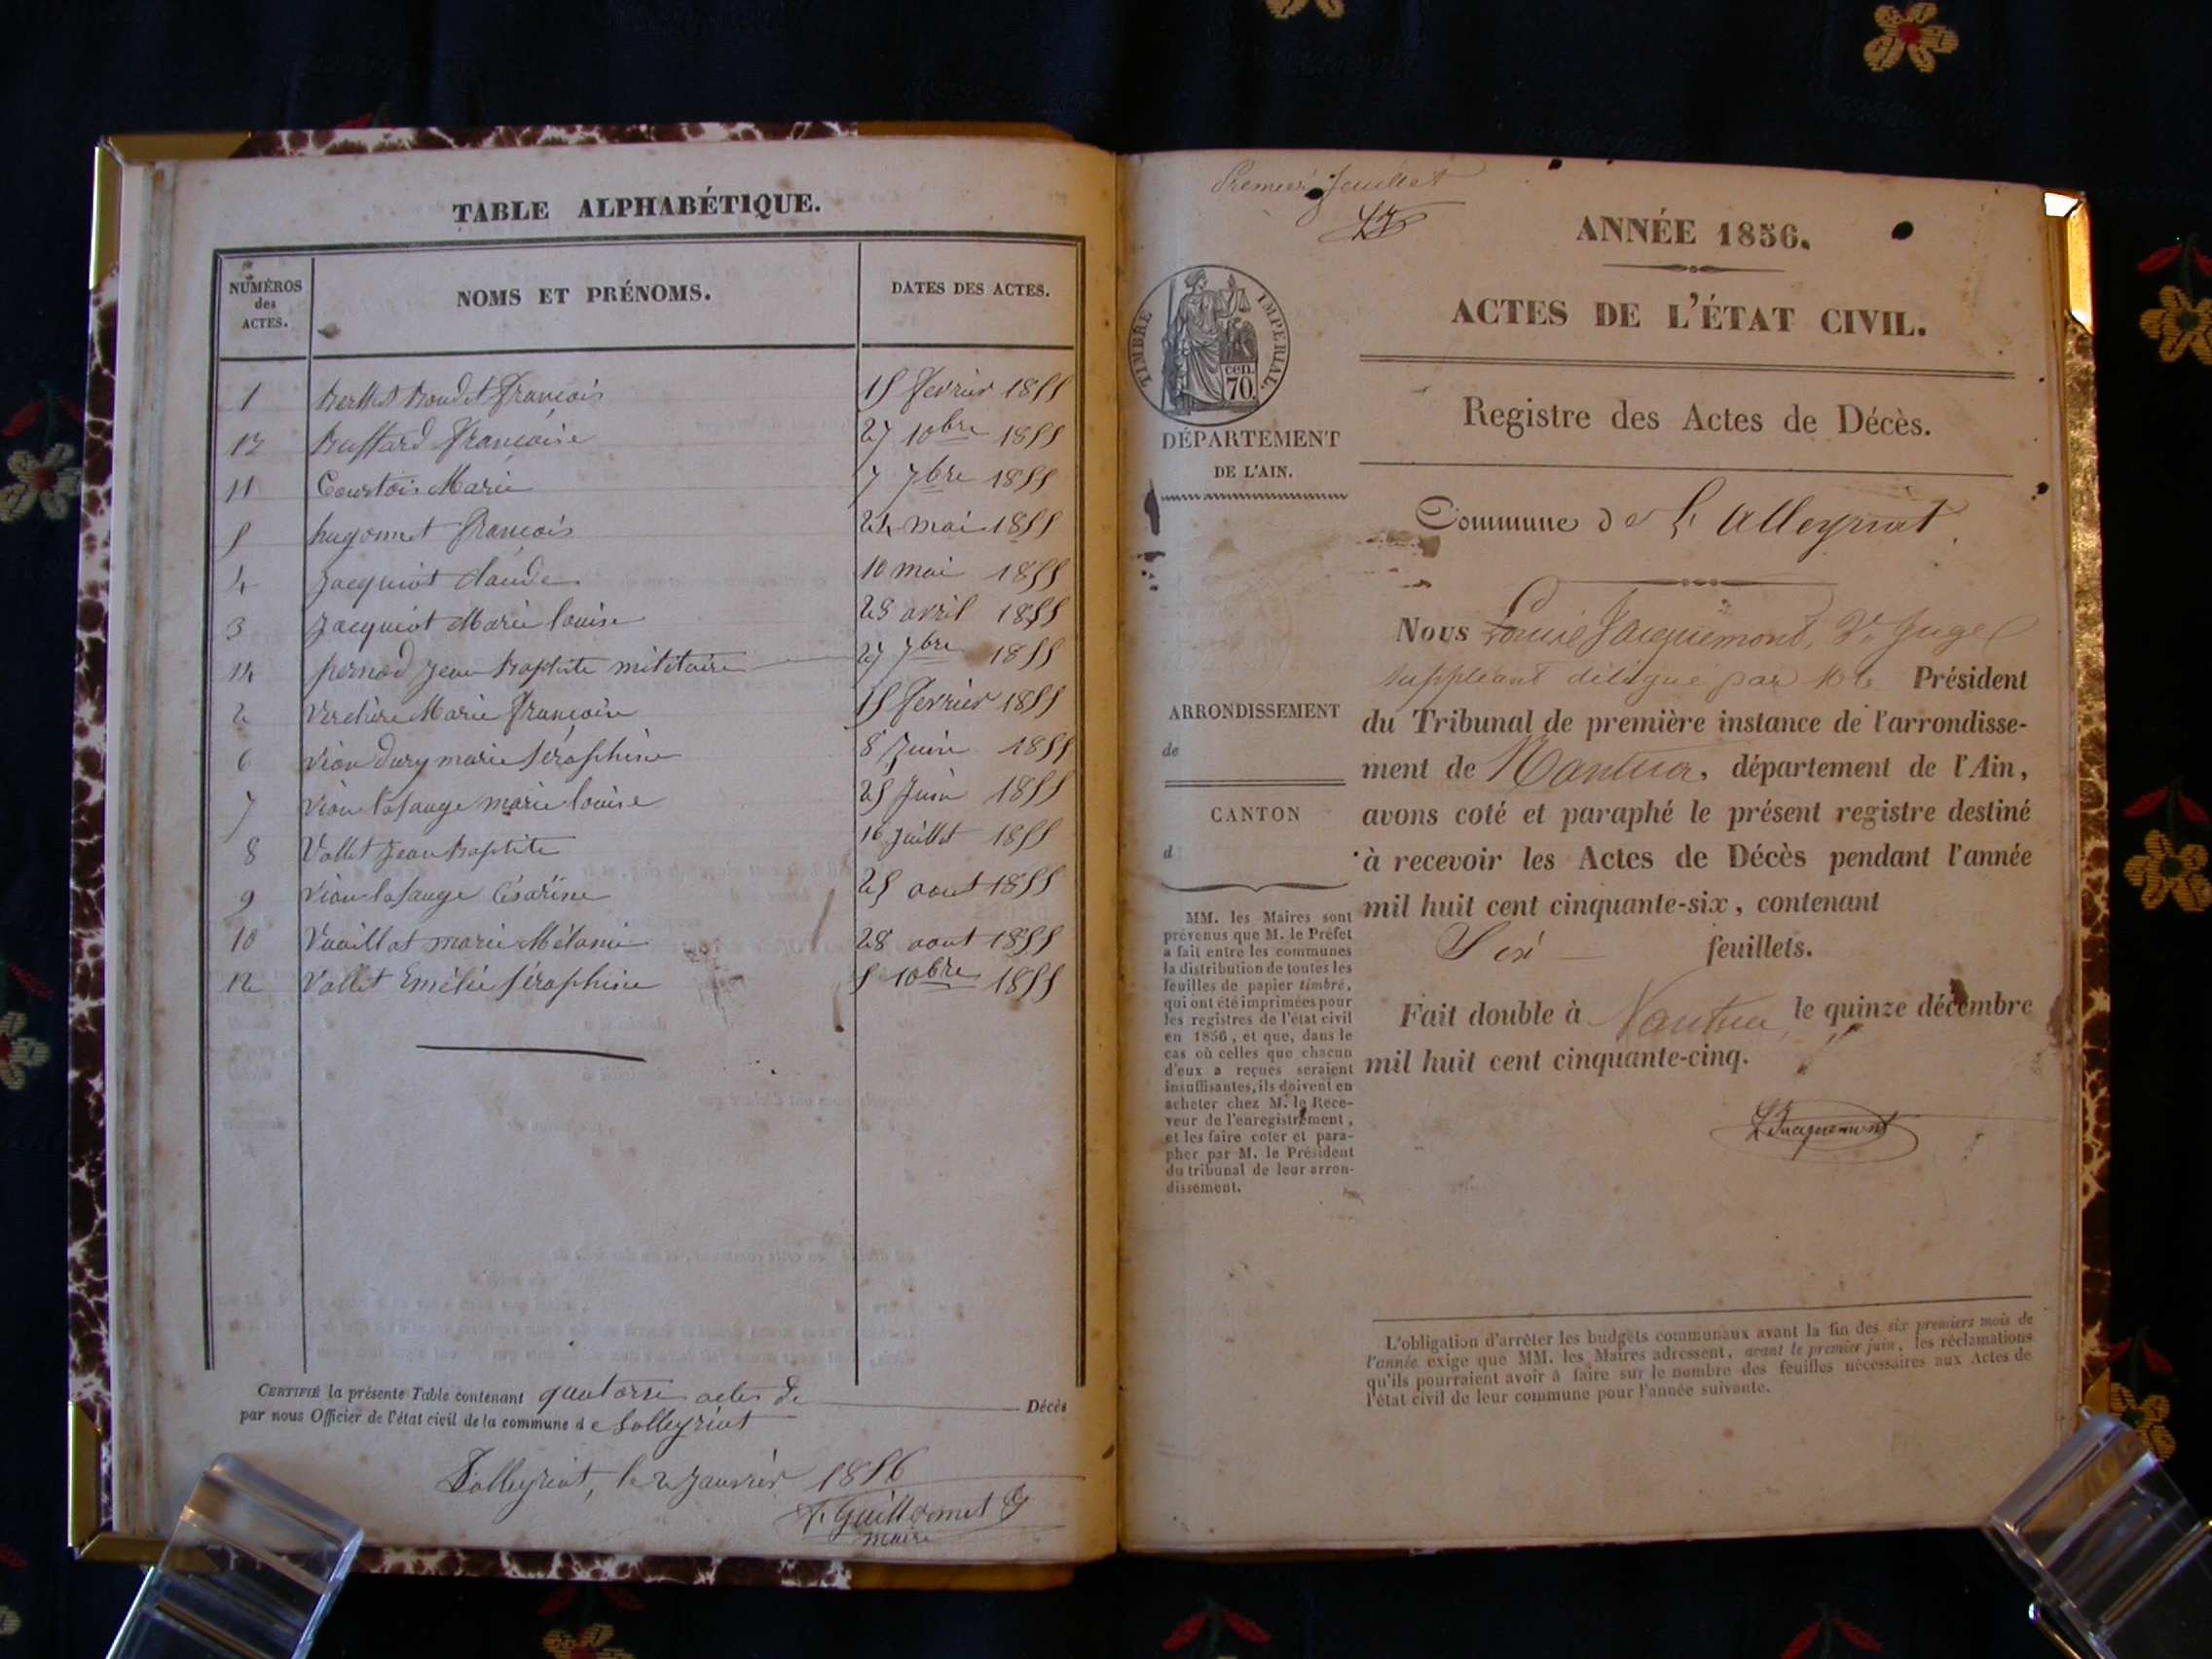 TABLE ALPHABÉTIQUE.
NUMÉROS
des
ACTES.
NOMS ET PRÉNOMS.
DATES DES ACTES.
1 François 15 fevrier 1855
13 Buffard Françoise 27 10bre 1855
11 Courtois Marie 7 7bre 1855
5 hugonnet François 24 mai 1855
4 Jacquiot Claude 10 mai 1855
3 Jacquiot Marie louise 28 avril 1855
14 pernod Jean Baptiste militaire 27 7bre 1855
2 Verchère Marie Françoise 15 fevrier 1855
6 Vion Dury marie Séraphine 8 Juin 1855
7 Vion lafauge marie louise 25 Juin 1855
8 Vallet Jean Baptiste 16 Juillet 1855
9 Vion lafauge Césarine 25 aout 1855
10 Vuaillat marie Mélanie 28 aout 1855
12 Vallet Emélie Séraphine 5 10bre 1855
CERTIFIÉ la présente Table contenant quatorze actes de Décès
par nous Officier de l'état civil de la commune de Lalleyriat
Lalleyriat, le 2 Janvier 1856
Guillermet
maire
Premier feuillet
ANNÉE 1856.
ACTES DE L'ÉTAT CIVIL.
TIMBRE IMPÉRIAL.
cen.
70.
Registre des Actes de Décès.
DÉPARTEMENT
DE L'AIN.
Commune de L'Alleyriat.
Nous Louis Jacquemont, Juge
suppléant délégué par Mr le Président
du Tribunal de première instance de l'arrondisse-
ment de Nantua, département de l'Ain,
avons coté et paraphé le présent registre destiné
à recevoir les Actes de Décès pendant l'année
mil huit cent cinquante-six, contenant
Six feuillets.
Fait double à Nantua, le quinze décembre
mil huit cent cinquante-cinq.
L Jacquemont
ARRONDISSEMENT
de
CANTON
d
MM. les Maires sont
prévenus que M. le Préfet
a fait entre les communes
la distribution de toutes les
feuilles de papier timbré,
qui ont été imprimées pour
les registres de l'état civil
en 1856, et que, dans le
cas où celles que chacun
d'eux a reçues seraient
insuffisantes, ils doivent en
acheter chez M. le Rece-
veur de l'enregistrement,
et les faire coter et para-
pher par M. le Président
du tribunal de leur arron-
dissement.
L'obligation d'arrêter les budgets communaux avant la fin des six premiers mois de
l'année exige que MM. les Maires adressent, avant le premier juin, les réclamations
qu'ils pourraient avoir à faire sur le nombre des feuilles nécessaires aux Actes de
l'état civil de leur commune pour l'année suivante.